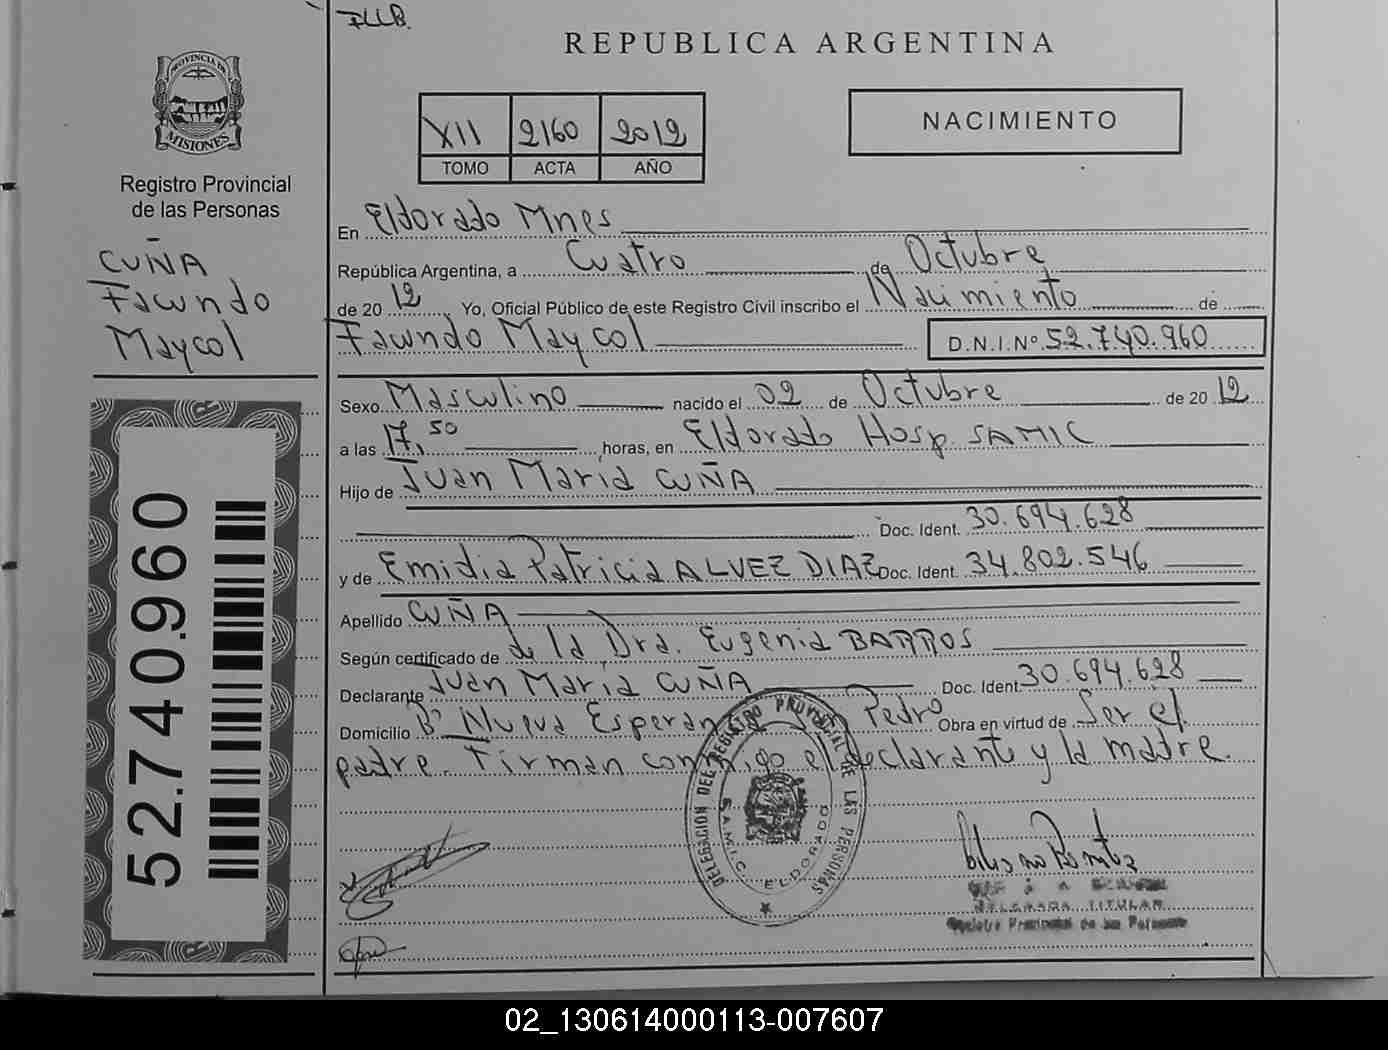 FLLB.
REPUBLICA ARGENTINA
PROVINCIA DE
MISIONES
Registro Provincial
de las Personas
XII 2160 2012
TOMO ACTA AÑO
NACIMIENTO
CUÑA
Facundo
Maycol
52.740.960
En Eldorado Mnes
República Argentina, a Cuatro de Octubre
de 20 12 Yo, Oficial Público de este Registro Civil inscribo el Nacimiento de
Facundo Maycol D.N.I.Nº 52.740.960
Sexo Masculino nacido el 02 de Octubre de 20 12
a las 17,50 horas, en Eldorado Hosp. SAMIC
Hijo de Juan Maria CUÑA
Doc. Ident. 30.694.628
y de Emidia Patricia ALVEZ DIAZ Doc. Ident. 34.802.546
Apellido CUÑA
Según certificado de de la Dra. Eugenia BARROS
Declarante Juan Maria CUÑA Doc. Ident. 30.694.628
Domicilio Bº Nueva Esperan Pedro Obra en virtud de Ser el
padre. Firman conmigo el declarante y la madre.
DELEGACION DEL REGISTRO PROVINCIAL DE LAS PERSONAS
S.A.M.I.C. ELDORADO
DELEGADA TITULAR
Registro Provincial de las Personas
02_130614000113-007607